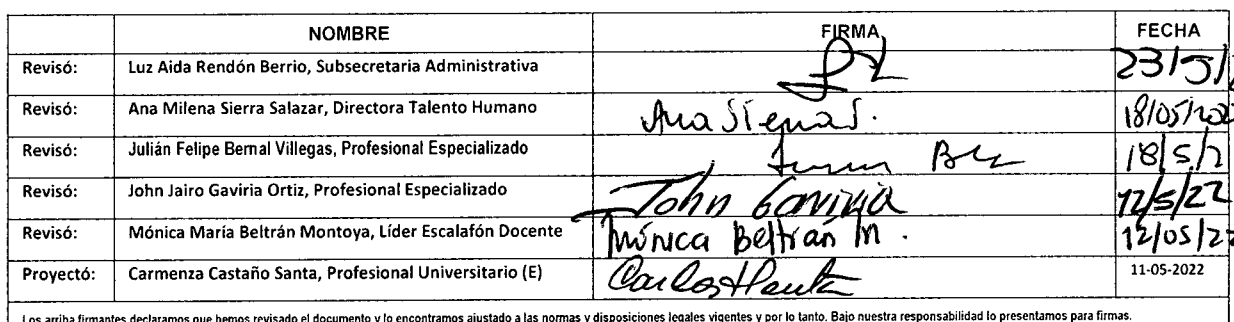 NOMBRE FIRMA FECHA
Revisó: Luz Aida Rendón Berrio, Subsecretaria Administrativa 23/5/
Revisó: Ana Milena Sierra Salazar, Directora Talento Humano Ana Sierra S. 18/05/202
Revisó: Julián Felipe Bernal Villegas, Profesional Especializado 18/5/2
Revisó: John Jairo Gaviria Ortiz, Profesional Especializado John Gaviria 12/5/22
Revisó: Mónica María Beltrán Montoya, Líder Escalafón Docente Mónica Beltrán M. 12/05/22
Proyectó: Carmenza Castaño Santa, Profesional Universitario (E) 11-05-2022
Los arriba firmantes declaramos que hemos revisado el documento y lo encontramos ajustado a las normas y disposiciones legales vigentes y por lo tanto. Bajo nuestra responsabilidad lo presentamos para firmas.